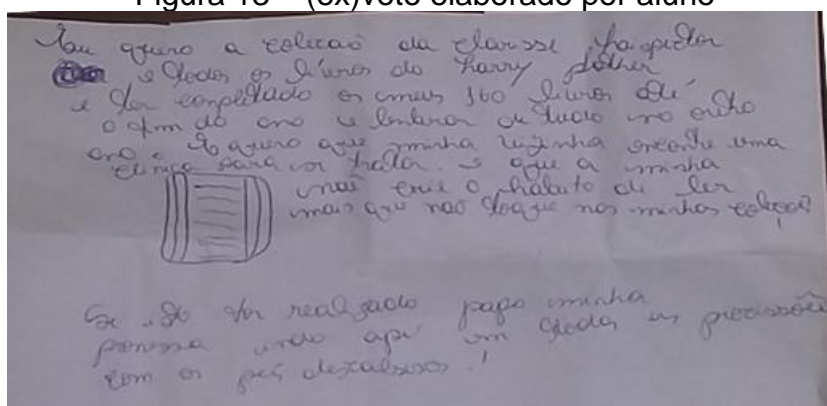 Figura 18 – (ex)voto elaborado por aluno
Eu quero a coleicaõ da clarisse
e todos os livros do harry pother
e ter conpletado os meus 360 livros até
o fim do ano e lenbrar de tudo no outro
ano. E quero que minha vizinha encontre uma
clinica para se tratar. e que a minha
maẽ crie o habuto de ler
mais que naõ toque nas minhas coleçoẽ!
Se isso for realizado pago minha
promessa indo apé em todas as procissoẽ
com os pés descalsos.!